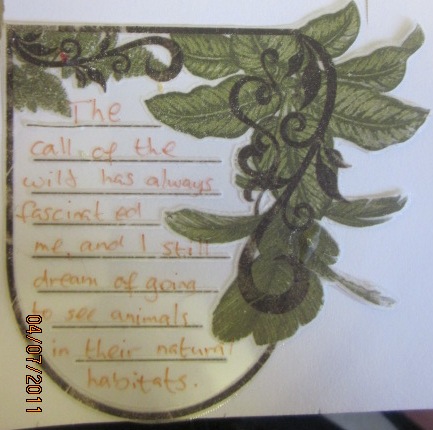 The
call of the
wild has always
fascinated
me, and I still
dream of going
to see animals
in their natural
habitats.
04/07/2011